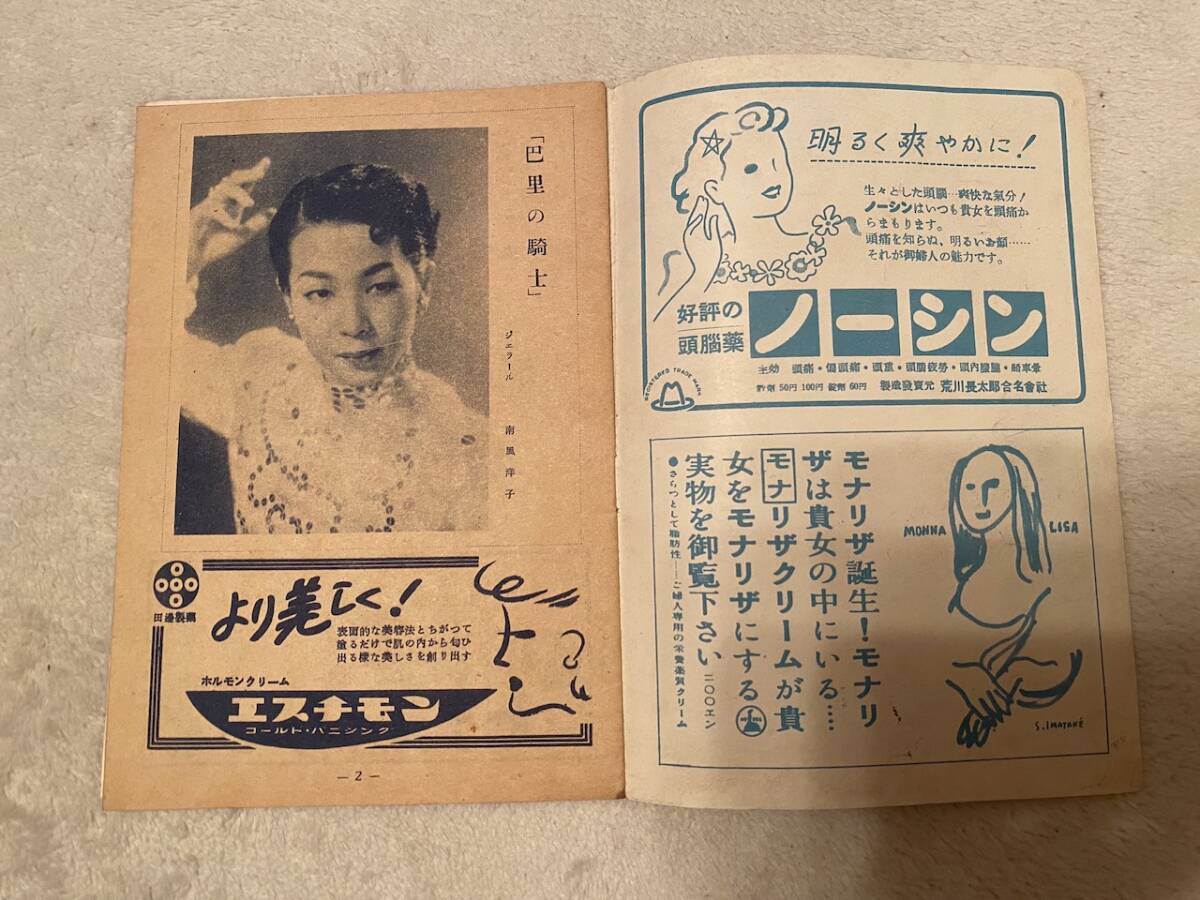 「巴里の騎士」
ジェラール 南風洋子
田邊製薬
より美しく!
表面的な美容法とちがつて
塗るだけで肌の内から匂ひ
出る様な美しさを創り出す
ホルモンクリーム
エスチモン
コールド・バニシング
— 2 —
明るく爽やかに!
生々とした頭腦…爽快な氣分!
ノーシンはいつも貴女を頭痛か
らまもります。
頭痛を知らぬ、明るいお顔……
それが御婦人の魅力です。
好評の
頭腦薬
ノーシン
主効 頭痛・偏頭痛・頭重・頭腦疲勞・頭内朦朧・船車暈
粉剤 50円 100円 錠剤 60円 製造發賣元 荒川長太郎合名會社
REGISTERED TRADE MARK
モナリザ誕生!モナリ
ザは貴女の中にいる……
モナリザクリームが貴
女をモナリザにする
実物を御覧下さい 二〇〇エン
●さらつとして脂肪性——ご婦人専用の栄養薬質クリーム
MONNA LISA
S. IMATAKÉ